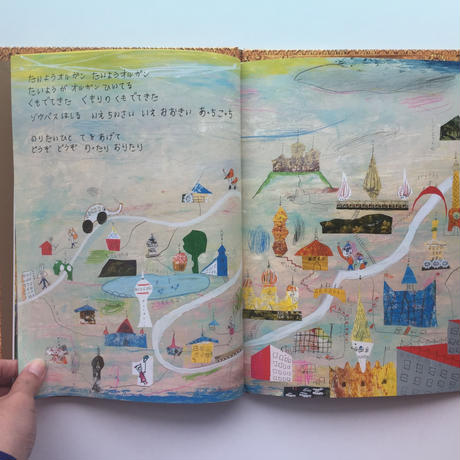 たいようオルガン たいようオルガン
たいようが オルガン ひいてる
くもでてきた くすりのくもでてきた
ゾウバスはしる いえちいさい いえおおきい あっちこっち
のりたいひと てをあげて
どうぞ どうぞ のったり おりたり